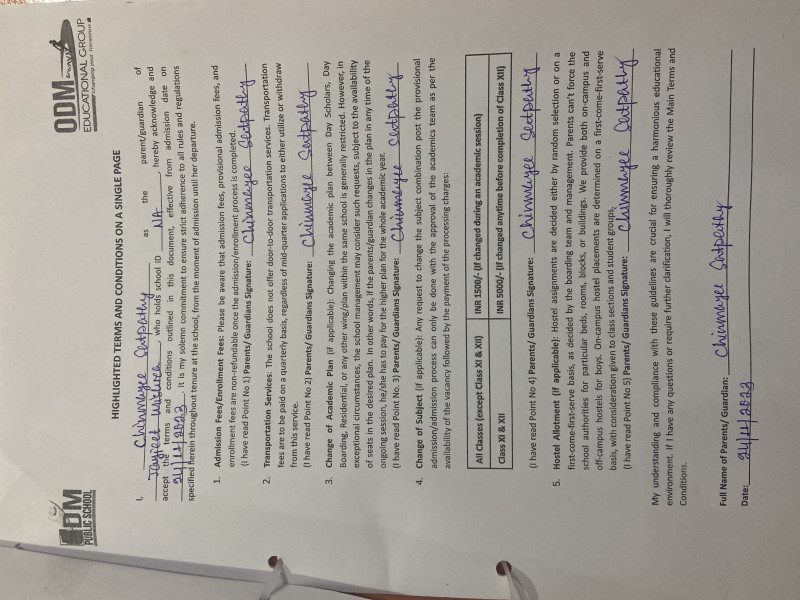 ODM
PUBLIC SCHOOL
ODM
EDUCATIONAL GROUP
Changing your tomorrow
HIGHLIGHTED TERMS AND CONDITIONS ON A SINGLE PAGE
I, Chinmayee Satpathy as the parent/guardian of
who holds school ID NA, hereby acknowledge and
accept the terms and conditions outlined in this document, effective from admission date on
It is my solemn commitment to ensure strict adherence to all rules and regulations
specified herein throughout tenure at the school, from the moment of admission until her departure.
1. Admission Fees/Enrollment Fees: Please be aware that admission fees, provisional admission fees, and
enrollment fees are non-refundable once the admission/enrollment process is completed.
(I have read Point No 1) Parents/ Guardians Signature: Chinmayee Satpathy
2. Transportation Services: The school does not offer door-to-door transportation services. Transportation
fees are to be paid on a quarterly basis, regardless of mid-quarter applications to either utilize or withdraw
from this service.
(I have read Point No 2) Parents/ Guardians Signature: Chinmayee Satpathy
3. Change of Academic Plan (if applicable): Changing the academic plan between Day Scholars, Day
Boarding, Residential, or any other wing/plan within the same school is generally restricted. However, in
exceptional circumstances, the school management may consider such requests, subject to the availability
of seats in the desired plan. In other words, if the parents/guardian changes in the plan in any time of the
ongoing session, he/she has to pay for the higher plan for the whole academic year.
(I have read Point No. 3) Parents/ Guardians Signature: Chinmayee Satpathy
4. Change of Subject (if applicable): Any request to change the subject combination post the provisional
admission/admission process can only be done with the approval of the academics team as per the
availability of the vacancy followed by the payment of the processing charges:
All Classes (except Class XI & XII) INR 1500/- (If changed during an academic session)
Class XI & XII INR 5000/- (If changed anytime before completion of Class XII)
(I have read Point No 4) Parents/ Guardians Signature: Chinmayee Satpathy
5. Hostel Allotment (if applicable): Hostel assignments are decided either by random selection or on a
first-come-first-serve basis, as decided by the boarding team and management. Parents can't force the
school authorities for particular beds, rooms, blocks, or buildings. We provide both on-campus and
off-campus hostels for boys. On-campus hostel placements are determined on a first-come-first-serve
basis, with consideration given to class sections and student groups.
(I have read Point No 5) Parents/ Guardians Signature: Chinmayee Satpathy
My understanding and compliance with these guidelines are crucial for ensuring a harmonious educational
environment. If I have any questions or require further clarification, I will thoroughly review the Main Terms and
Conditions.
Full Name of Parents/ Guardian: Chinmayee Satpathy
Date: